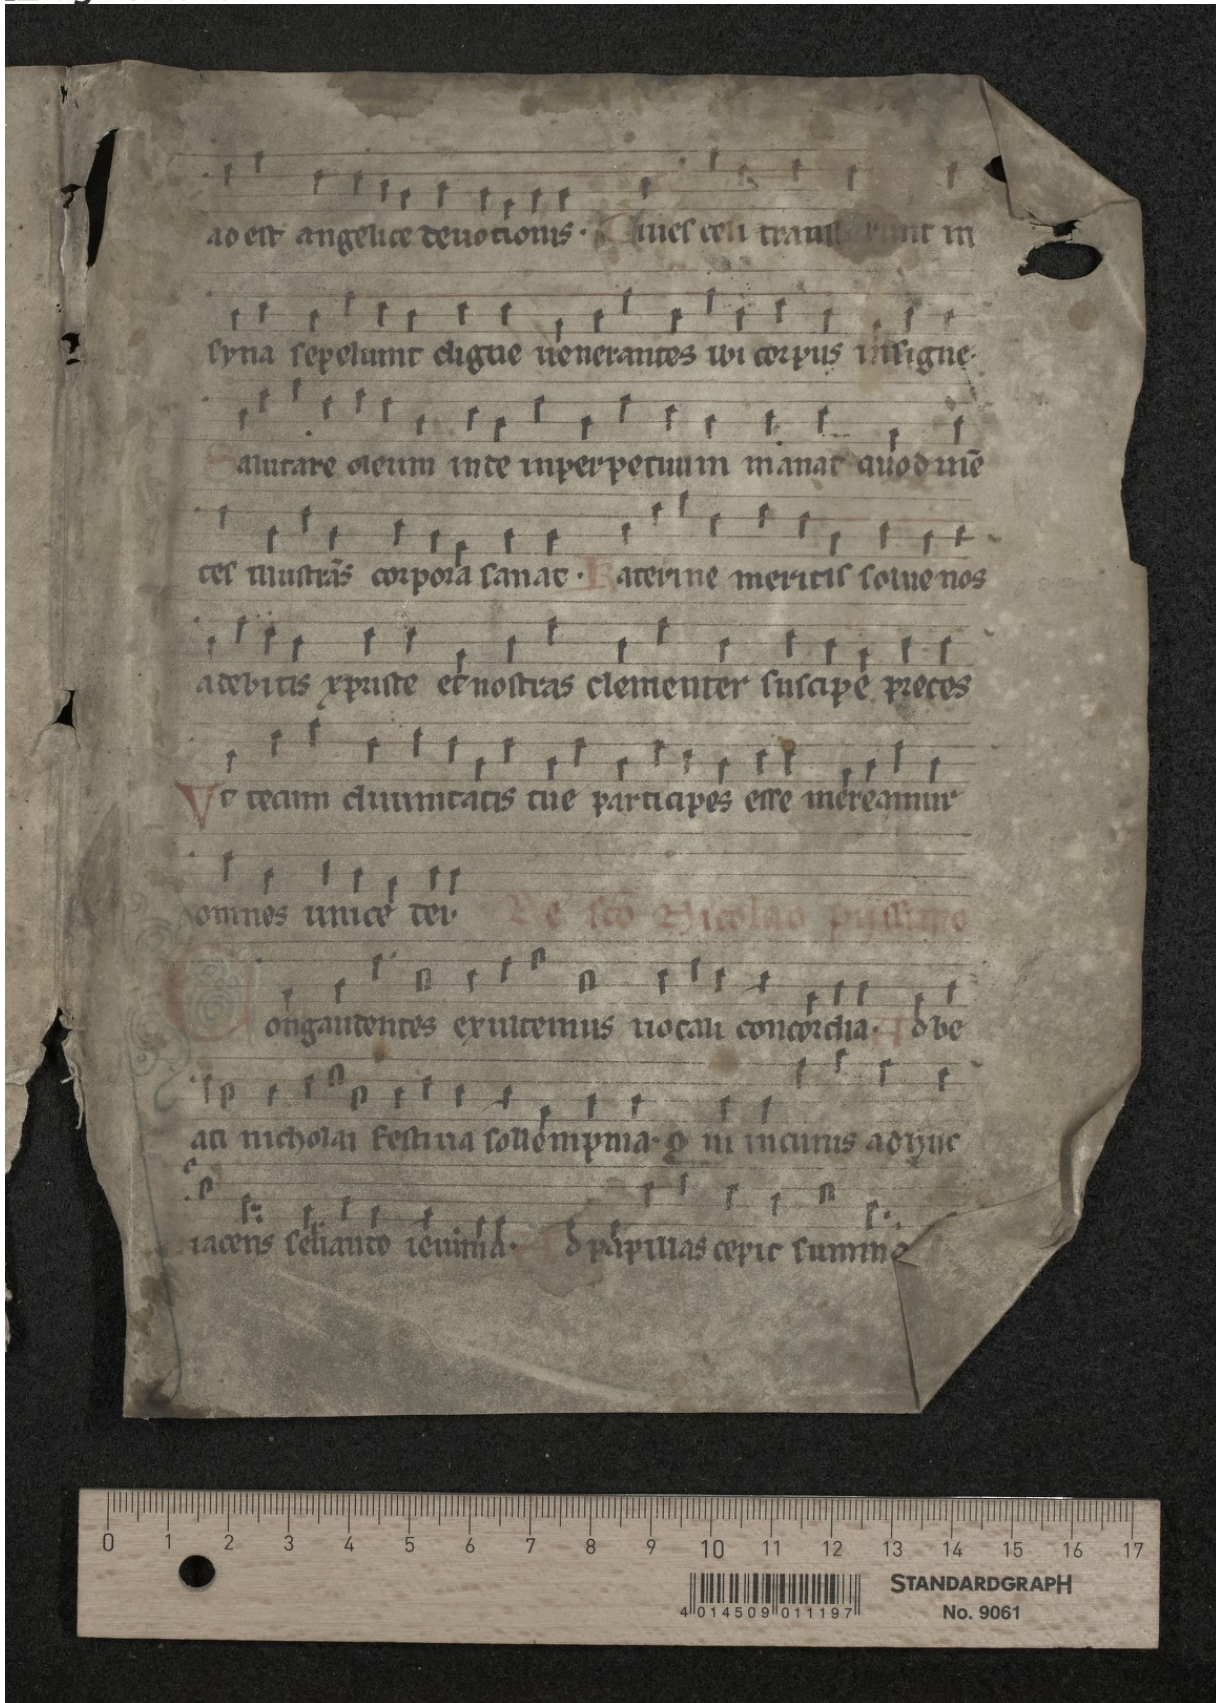 ad est angelice deuotionis · Ciues celi transtulerunt in
syna sepeliunt digne uenerantes ubi corpus insigne·
Salutare oleum inde inperpetuum manat quod mē
tes illustrās corpora sanat · Katerine meritis solue nos
a debitis xpriste et nostras clementer suscipe preces
Vt tecum diuinitatis tue participes esse mereamur
omnes unice dei·
De sco Nicolao
Congaudentes exultemus uocali concordia· Ad be
ati nicholai festiua sollempnia· Q ui in cunis adhuc
iacens seruando ieiunia· Ad papillas cepit summa
0 1 2 3 4 5 6 7 8 9 10 11 12 13 14 15 16 17
STANDARDGRAPH
4 014509 011197
No. 9061